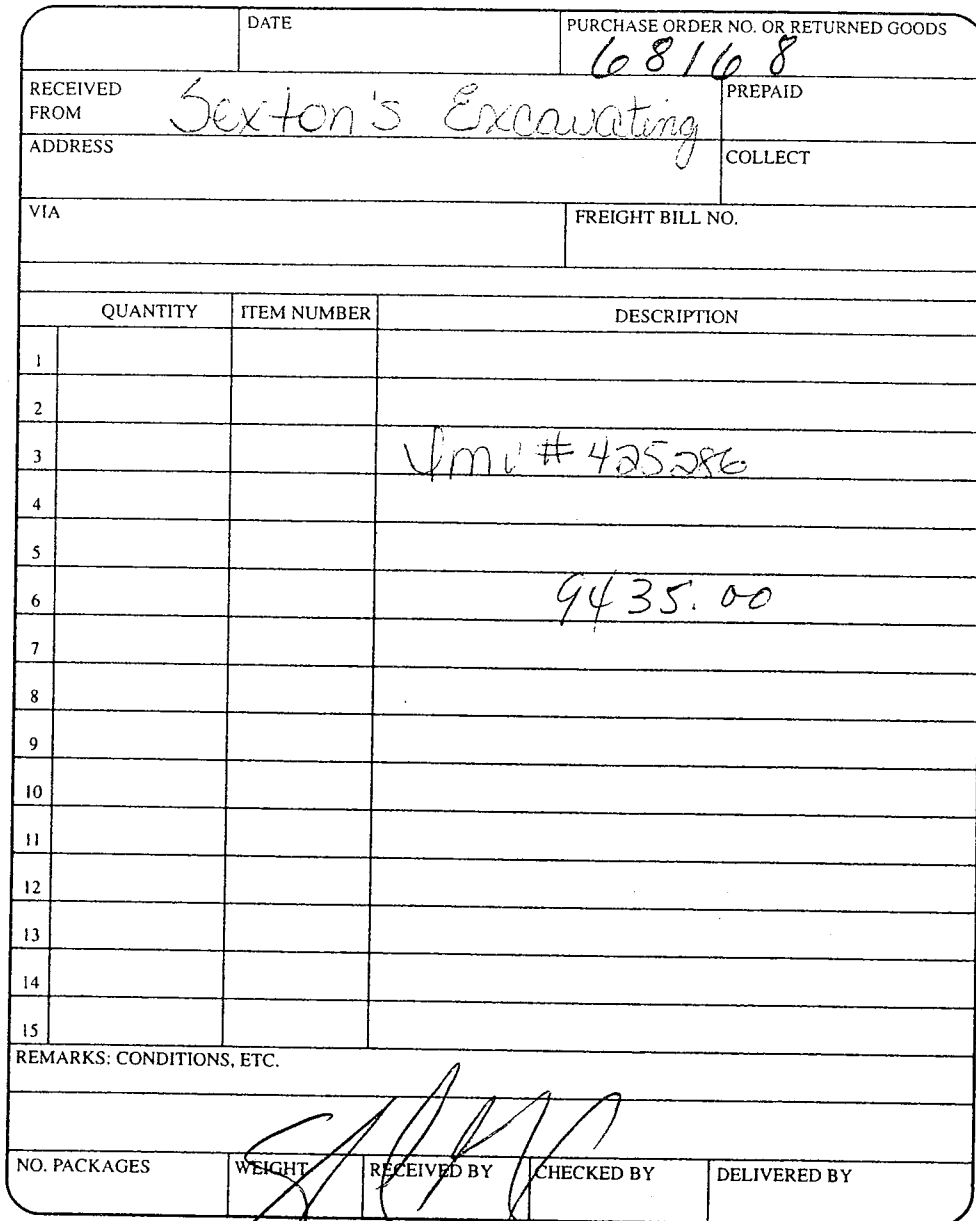 DATE
PURCHASE ORDER NO. OR RETURNED GOODS
68168
RECEIVED FROM Sexton's Excavating
PREPAID
ADDRESS
COLLECT
VIA
FREIGHT BILL NO.
QUANTITY ITEM NUMBER DESCRIPTION
1
2
3 # 425286
4
5
6 9435.00
7
8
9
10
11
12
13
14
15
REMARKS: CONDITIONS, ETC.
NO. PACKAGES WEIGHT RECEIVED BY CHECKED BY DELIVERED BY